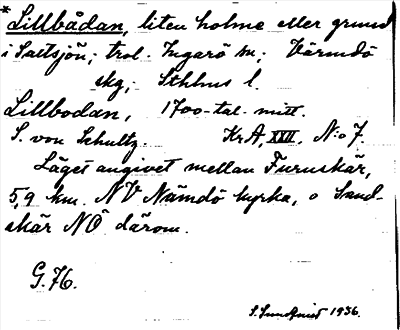 * Lillbådan, liten holme eller grund
i Saltsjön; trol. Ingarö sn; Värmdö
skg; Sthlms l.
Lillbodan, 1700-tal. mitt.
S. von Schultz. KrA, XXII, No 7.
Läget angivet mellan Furuskär,
5,9 km. NV Nämdö kyrka, o Sand-
skär NÖ därom.
G. 76.
S. Sundqvist 1936.